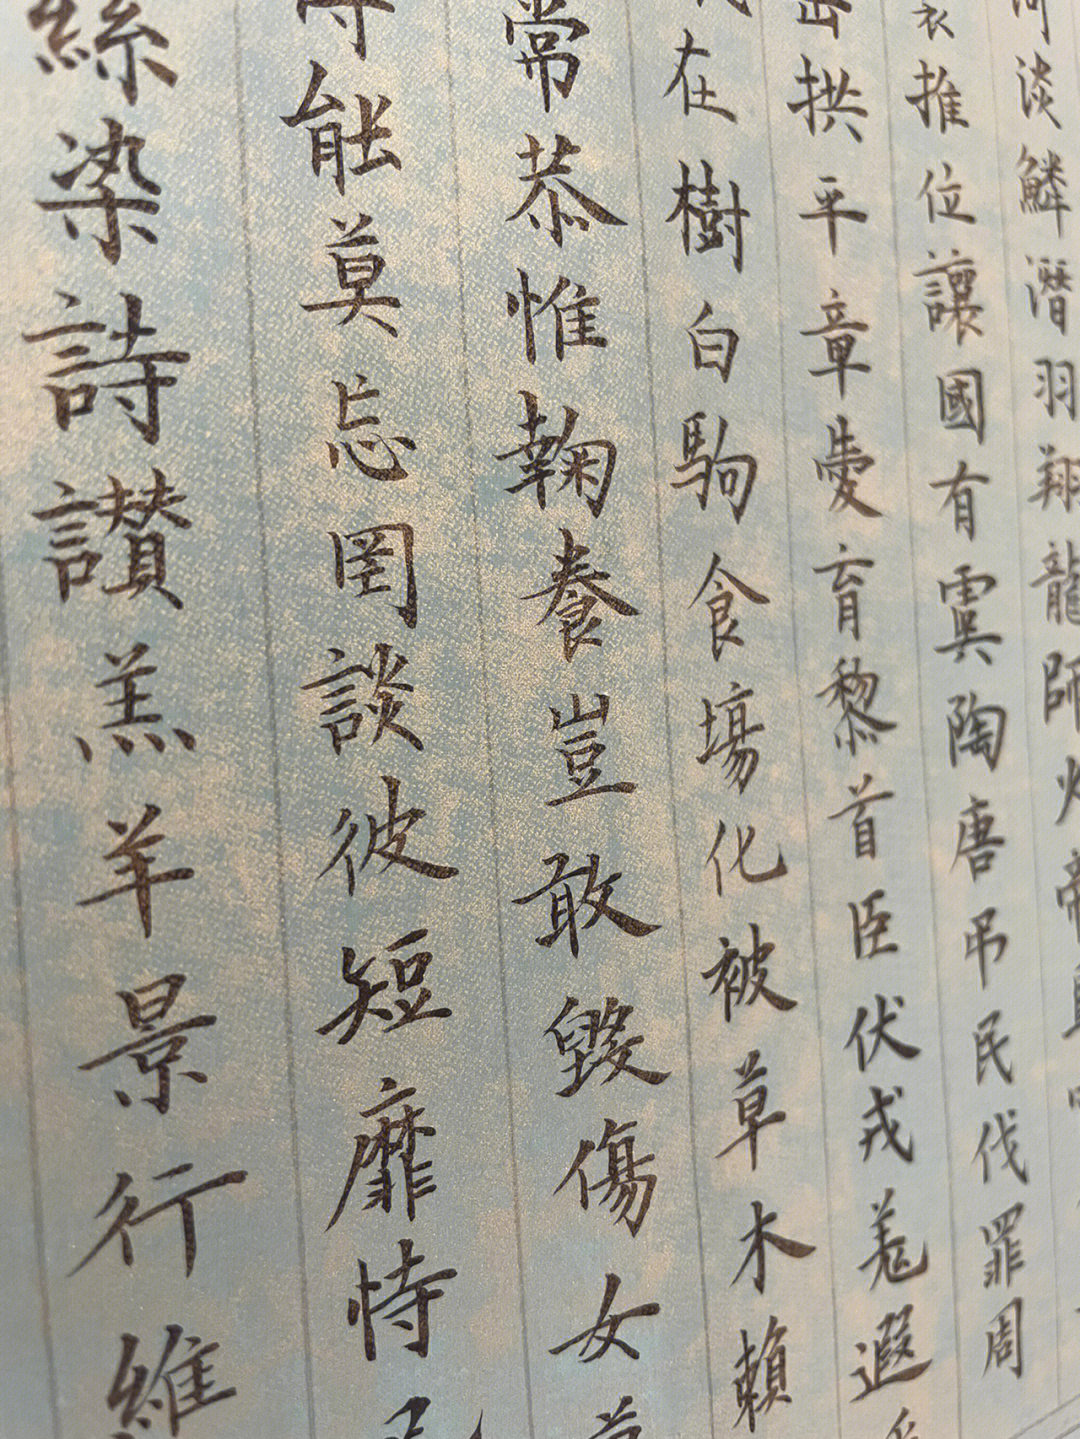 淡鱗潛羽翔龍師火帝
衣推位讓國有虞陶唐吊民伐罪周
拱平章愛育黎首臣伏戎羌遐
在樹白駒食場化被草木賴
常恭惟鞠養豈敢毀傷女
得能莫忘罔談彼短靡恃
絲染詩讚羔羊景行維